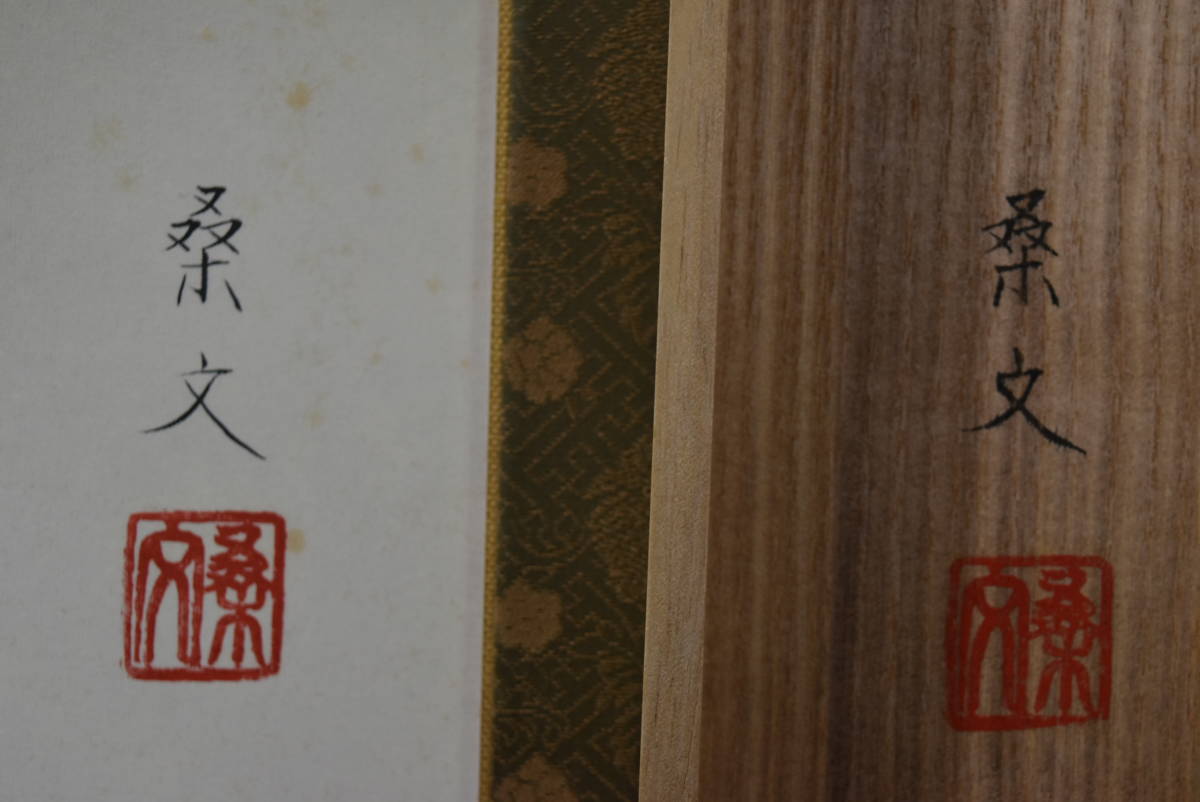 桑文
桑文
桑文
桑文